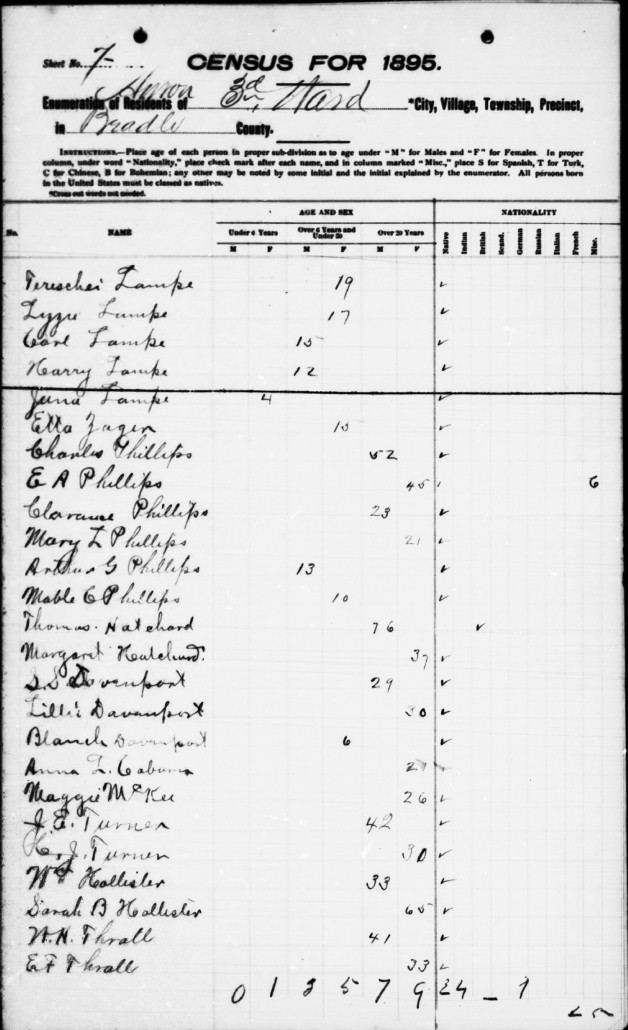 Sheet No. 7
CENSUS FOR 1895.
Huron
Enumeration of Residents of 3d Ward *City, Village, Township, Precinct,
in Beadle County.
INSTRUCTIONS.—Place age of each person in proper sub-division as to age under "M" for Males and "F" for Females. In proper
column, under word "Nationality," place check mark after each name, and in column marked "Misc.," place S for Spanish, T for Turk,
C for Chinese, B for Bohemian; any other may be noted by some initial and the initial explained by the enumerator. All persons born
in the United States must be classed as natives.
*Cross out words not needed.
AGE AND SEX NATIONALITY
No. NAME Under 6 Years Over 6 Years and Under 20 Over 20 Years Native Indian British Scand. German Russian Italian French Misc.
M F M F M F
Lampe 19 ✓
Lyzzie Lampe 17 ✓
Carl Lampe 15 ✓
Harry Lampe 12 ✓
Juna Lampe 4 ✓
Etta Zager 15 ✓
Charles Phillips 52 ✓
E A Phillips 45 ✓ 6
Clarance Phillips 23 ✓
Mary L Phillips 21 ✓
Arthur G Phillips 13 ✓
Mable C Phillips 10 ✓
Thomas Hatchard 76 ✓
Margaret Hatchard. 37 ✓
S. S Davenport 29 ✓
Lillie Davenport 30 ✓
Blanch Davenport 6 ✓
Anna L. 21 ✓
Maggie McKee 26 ✓
J. E. Turner 42 ✓
J. Turner 30 ✓
Hollister 33 ✓
Sarah B Hollister 65 ✓
W. H. Thrall 41 ✓
E F Thrall 33 ✓
0 1 3 5 7 9 24 – 1
25